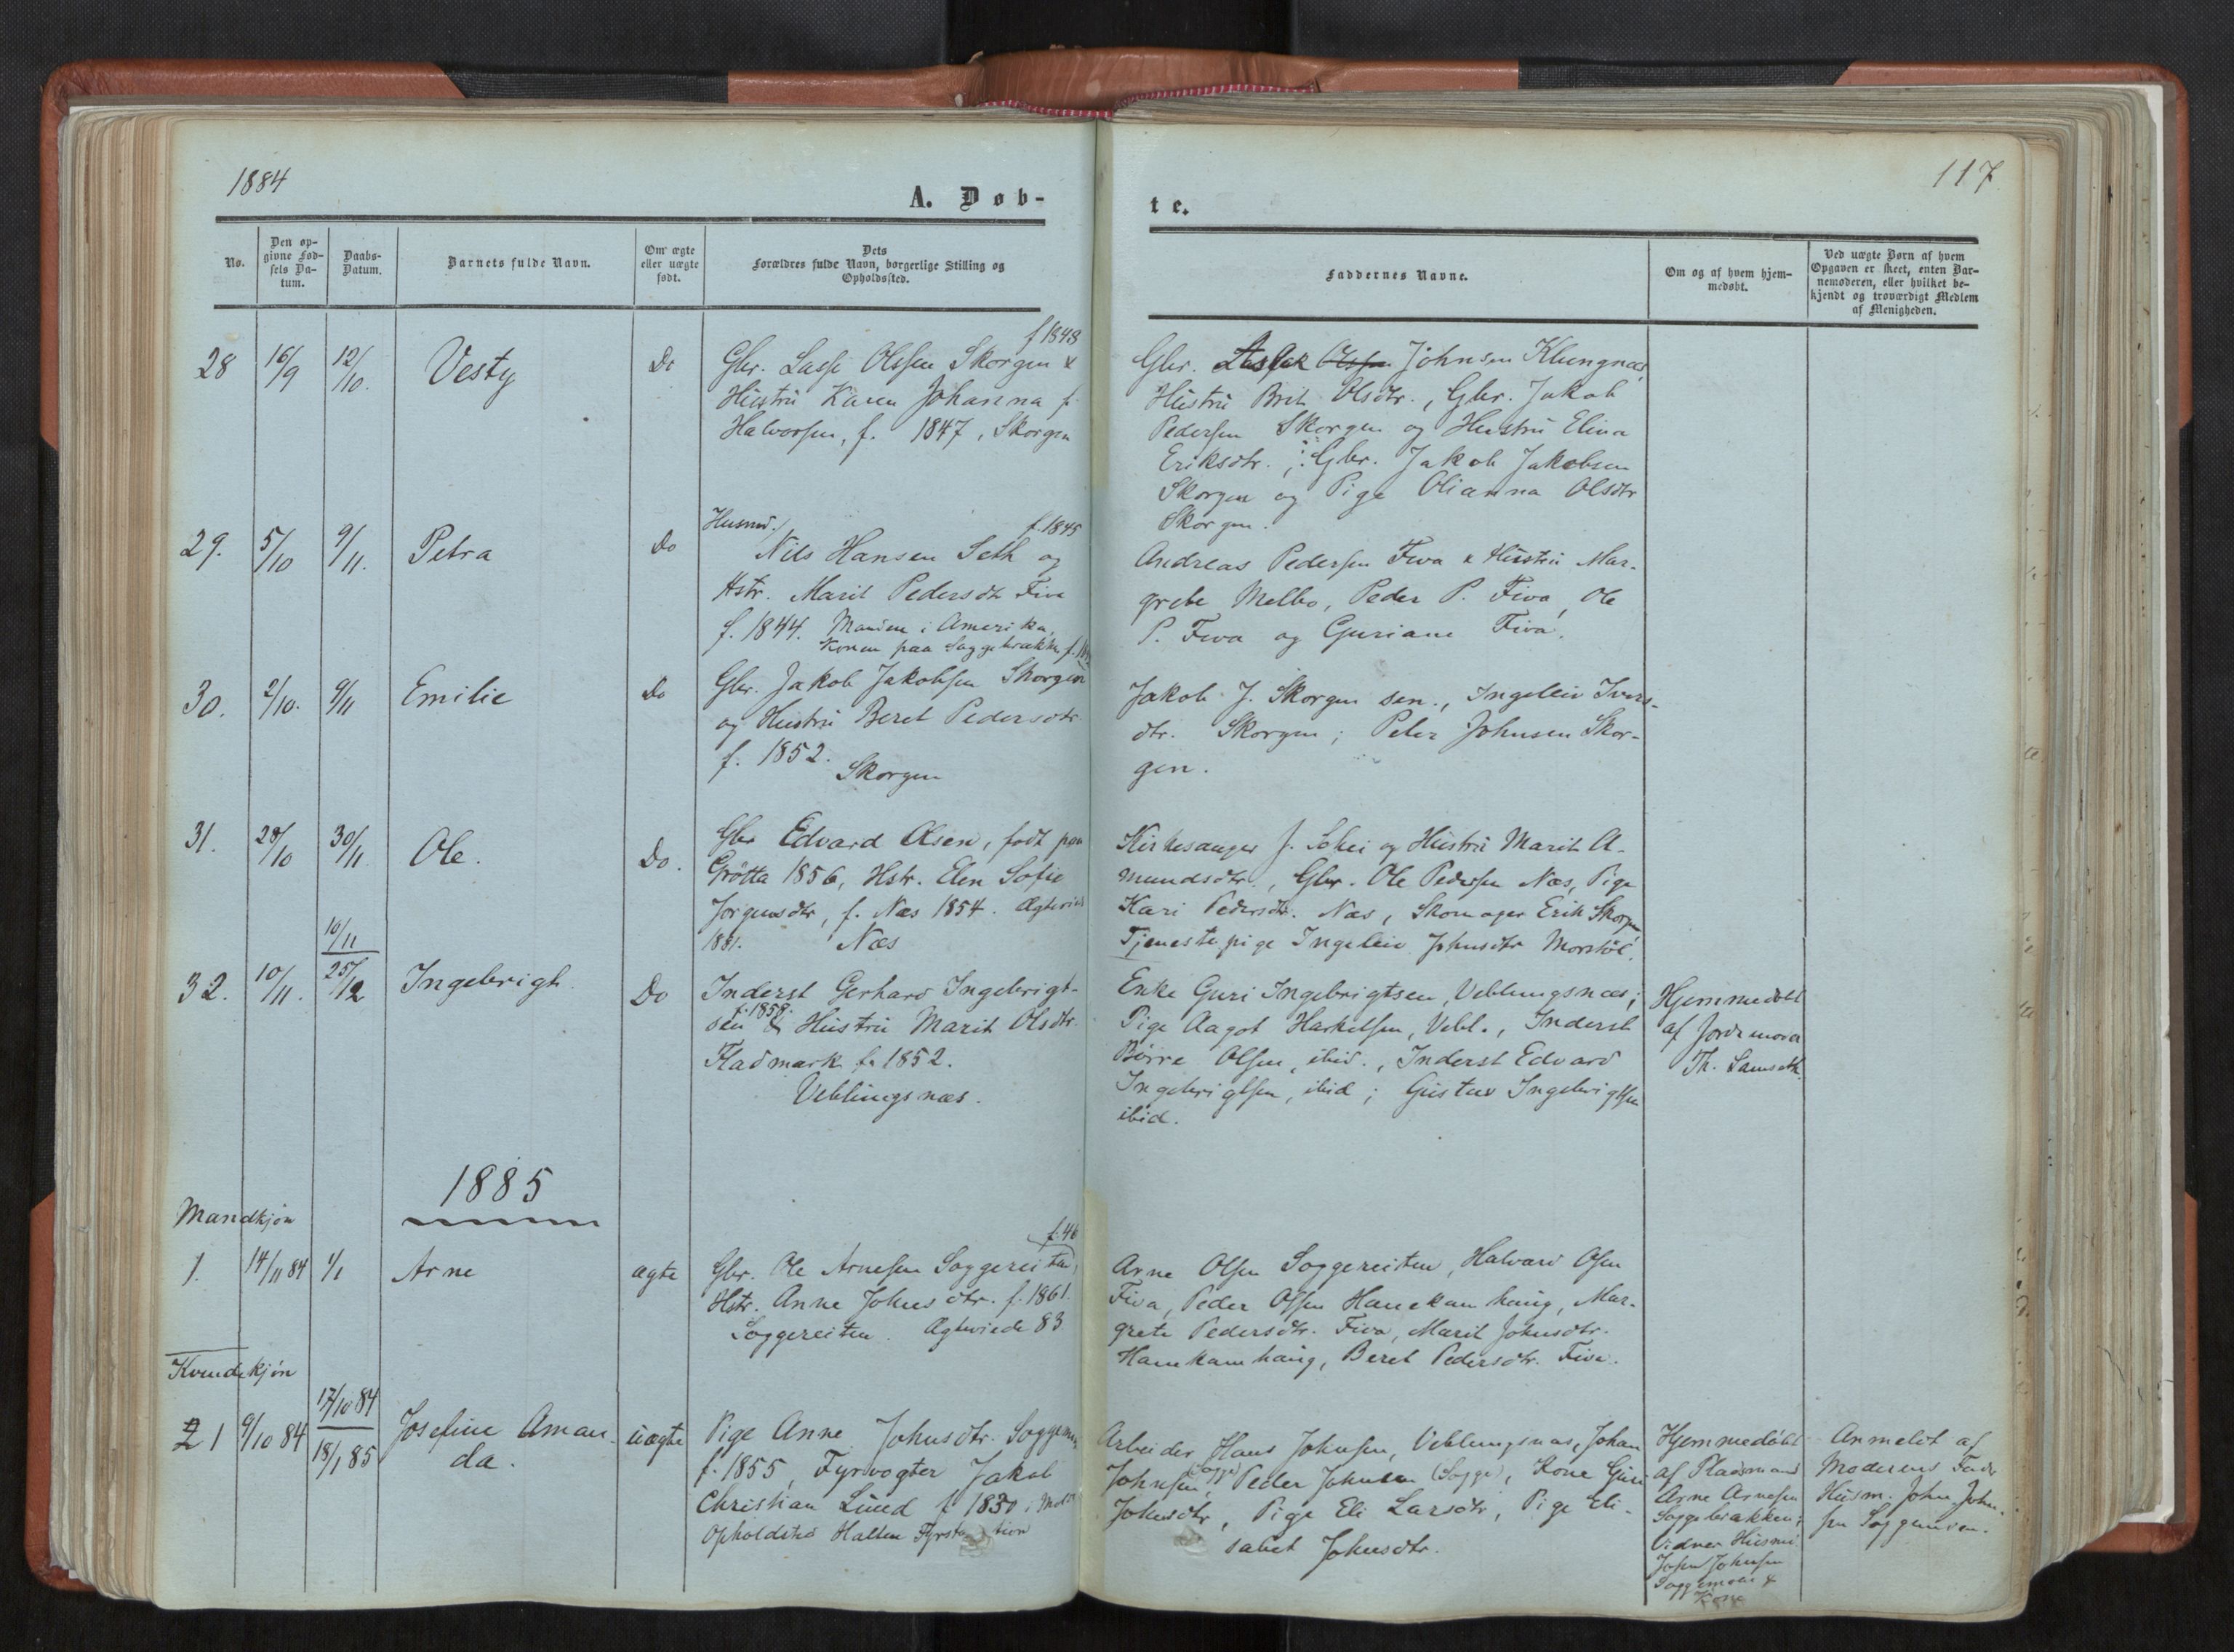 1884
A. Døb-
te.
117
No.
Den op-
givne Fød-
sels Da-
tum.
Daabs-
Datum.
Barnets fulde Navn.
Om ægte
eller uægte
født.
Dets
Forældres fulde Navn, borgerlige Stilling og
Opholdssted.
Faddernes Navne.
Om og af hvem hjem-
medøbt.
Ved uægte Børn af hvem
Opgaven er skeet, enten Bar-
nemoderen, eller hvilket be-
kjendt og troværdigt Medlem
af Menigheden.
28
16/9
12/10.
Vesty
Do
f 1848
Gbr. Lasse Olssen Skorgen &
Hustru Karen Johanna f.
Halvorsen, f. 1847, Skorgen
Gbr. Johnsen Klungnæs
Hustru Brit Olsdtr., Gbr. Jakob
Pedersen Skorgen og Hustru Elina
Eriksdtr.; Gbr. Jakob Jakobsen
Skorgen og Pige Olianna Olsdtr
Skorgen.
29.
5/10
9/11.
Petra
Do
Husmd.
f. 1845
Nils Hansen Seth og
Hstr. Marit Pedersdtr Fiva
f. 1844. Manden i Amerika,
Konen paa Soggebrakken
Andreas Pedersen Fiva & Hustru Mar-
grete Melbo, Peder P. Fiva, Ole
P. Fiva og Guriane Fiva.
30.
2/10.
9/11
Emilie
Do
Gbr. Jakob Jakobsen Skorgen
og Hustru Beret Pedersdtr
f. 1852.
Skorgen
Jakob J. Skorgen sen., Ingeleiv Ivers-
dtr. Skorgen; Peter Johnsen Skor-
gen.
31.
28/10
30/11
Ole.
Do.
Gbr Edvard Olsen, født paa
Grøtta 1856, Hstr. Elen Sofie
Jørgensdtr, f. Næs 1854. Ægteviet
1881. Næs
Kirkesanger J. Sohei og Hustru Marit A-
mundsdtr., Gbr. Ole Pedersen Næs, Pige
Kari Pedersdtr. Næs, Skomager Erik Skorgen,
Tjenestepige Ingeleiv Johnsdtr Morstøl.
32.
10/11.
10/11
25/12
Ingebrigt.
Do
Inderst Gerhard Ingebrigt-
sen f. 1858. & Hustru Marit Olsdtr.
Fladmark f. 1852.
Veblungsnæs.
Enke Guri Ingebrigtsen, Veblungsnæs;
Pige Aagot Harkelsen, Vebl., Inderst
Børre Olsen, ibid., Inderst Edvard
Ingebrigtsen, ibid; Gustav Ingebrigtsen
ibid.
Hjemmedøbt
af Jordemoder
Th. Samseth.
1885
Mandkjøn
1.
14/11 84
1/1
Arne
ægte
f. 46
Gbr. Ole Arnesen Soggereiten,
Hstr. Anne Johnsdtr. f. 1861.
Soggereiten. Ægteviede 83
Arne Olsen Soggereiten, Halvard Olsen
Fiva, Peder Olsen Hanekamhaug, Mar-
grete Pedersdtr. Fiva, Marit Johnsdtr.
Hanekamhaug, Beret Pedersdtr. Fiva.
Kvindekjøn
1
9/10 84
17/10 84
18/1 85
Josefine Aman-
da.
uægte
Pige Anne Johnsdtr. Soggemoen
f. 1855, Fyrvogter Jakob
Christian Lund f 1830 i Molde
Opholdsted Halten Fyrstation
Arbeider Hans Johnsen, Veblungsnæs, Johan
Johnsen (Sogge), Peder Johnsen (Sogge), Kone Guri
Johnsdtr, Pige Eli Larsdtr, Pige Eli-
sabet Johnsdtr.
Hjemmedøbt
af Pladsmand
Arne Arnesen
Soggebrakken;
Vidner Husm.
John Johnsen
Soggemoen &
Kone
Anmeldt af
Moderens Fader
Husm. John John-
sen Soggemoen.